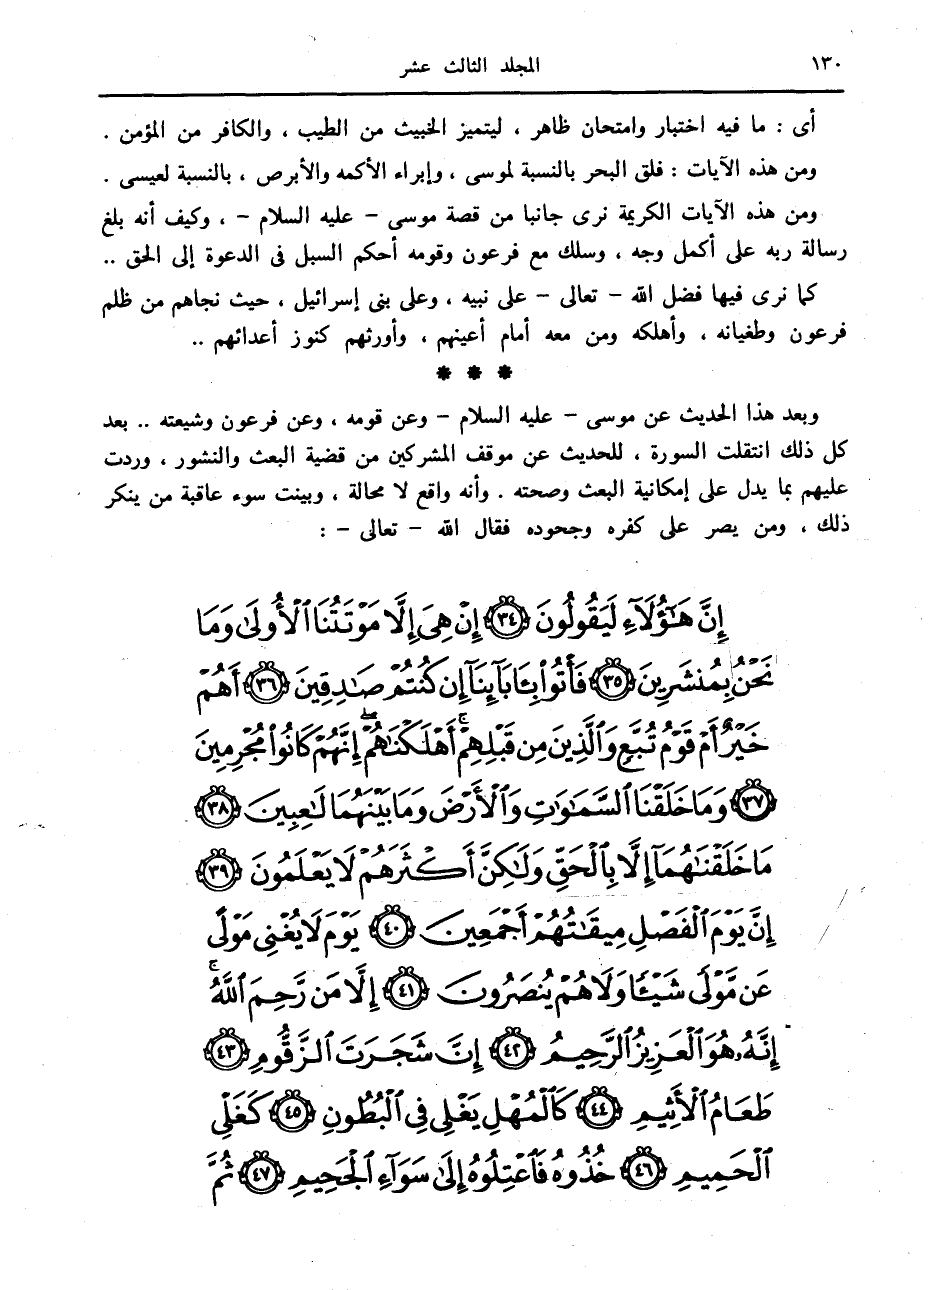 ١٣٠ المجلد الثالث عشر
أى : ما فيه اختبار وامتحان ظاهر ، ليتميز الخبيث من الطيب ، والكافر من المؤمن .
ومن هذه الآيات : فلق البحر بالنسبة لموسى ، وإبراء الأكمه والأبرص ، بالنسبة لعيسى .
ومن هذه الآيات الكريمة نرى جانبا من قصة موسى – عليه السلام – ، وكيف أنه بلغ
رسالة ربه على أكمل وجه ، وسلك مع فرعون وقومه أحكم السبل فى الدعوة إلى الحق ..
كما نرى فيها فضل الله – تعالى – على نبيه ، وعلى بنى إسرائيل ، حيث نجاهم من ظلم
فرعون وطغيانه ، وأهلكه ومن معه أمام أعينهم ، وأورثهم كنوز أعدائهم ..
* * *
وبعد هذا الحديث عن موسى – عليه السلام – وعن قومه ، وعن فرعون وشيعته .. بعد
كل ذلك انتقلت السورة ، للحديث عن موقف المشركين من قضية البعث والنشور ، وردت
عليهم بما يدل على إمكانية البعث وصحته . وأنه واقع لا محالة ، وبينت سوء عاقبة من ينكر
ذلك ، ومن يصر على كفره وجحوده فقال الله – تعالى – :
إِنَّ هَـٰٓؤُلَآءِ لَيَقُولُونَ ٣٤ إِنْ هِىَ إِلَّا مَوْتَتُنَا ٱلْأُولَىٰ وَمَا
نَحْنُ بِمُنشَرِينَ ٣٥ فَأْتُوا۟ بِـَٔابَآئِنَآ إِن كُنتُمْ صَـٰدِقِينَ ٣٦ أَهُمْ
خَيْرٌ أَمْ قَوْمُ تُبَّعٍ وَٱلَّذِينَ مِن قَبْلِهِمْ ۚ أَهْلَكْنَـٰهُمْ ۖ إِنَّهُمْ كَانُوا۟ مُجْرِمِينَ
٣٧ وَمَا خَلَقْنَا ٱلسَّمَـٰوَٰتِ وَٱلْأَرْضَ وَمَا بَيْنَهُمَا لَـٰعِبِينَ ٣٨
مَا خَلَقْنَـٰهُمَآ إِلَّا بِٱلْحَقِّ وَلَـٰكِنَّ أَكْثَرَهُمْ لَا يَعْلَمُونَ ٣٩
إِنَّ يَوْمَ ٱلْفَصْلِ مِيقَـٰتُهُمْ أَجْمَعِينَ ٤٠ يَوْمَ لَا يُغْنِى مَوْلًى
عَن مَّوْلًى شَيْـًٔا وَلَا هُمْ يُنصَرُونَ ٤١ إِلَّا مَن رَّحِمَ ٱللَّهُ ۚ
إِنَّهُۥ هُوَ ٱلْعَزِيزُ ٱلرَّحِيمُ ٤٢ إِنَّ شَجَرَتَ ٱلزَّقُّومِ ٤٣
طَعَامُ ٱلْأَثِيمِ ٤٤ كَٱلْمُهْلِ يَغْلِى فِى ٱلْبُطُونِ ٤٥ كَغَلْىِ
ٱلْحَمِيمِ ٤٦ خُذُوهُ فَٱعْتِلُوهُ إِلَىٰ سَوَآءِ ٱلْجَحِيمِ ٤٧ ثُمَّ